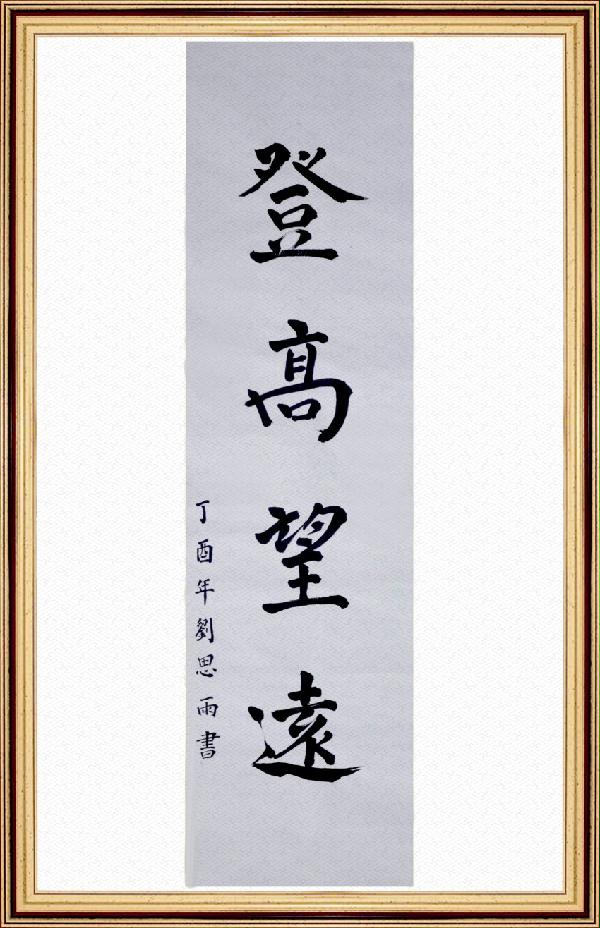 登高望遠
丁酉年劉思雨書